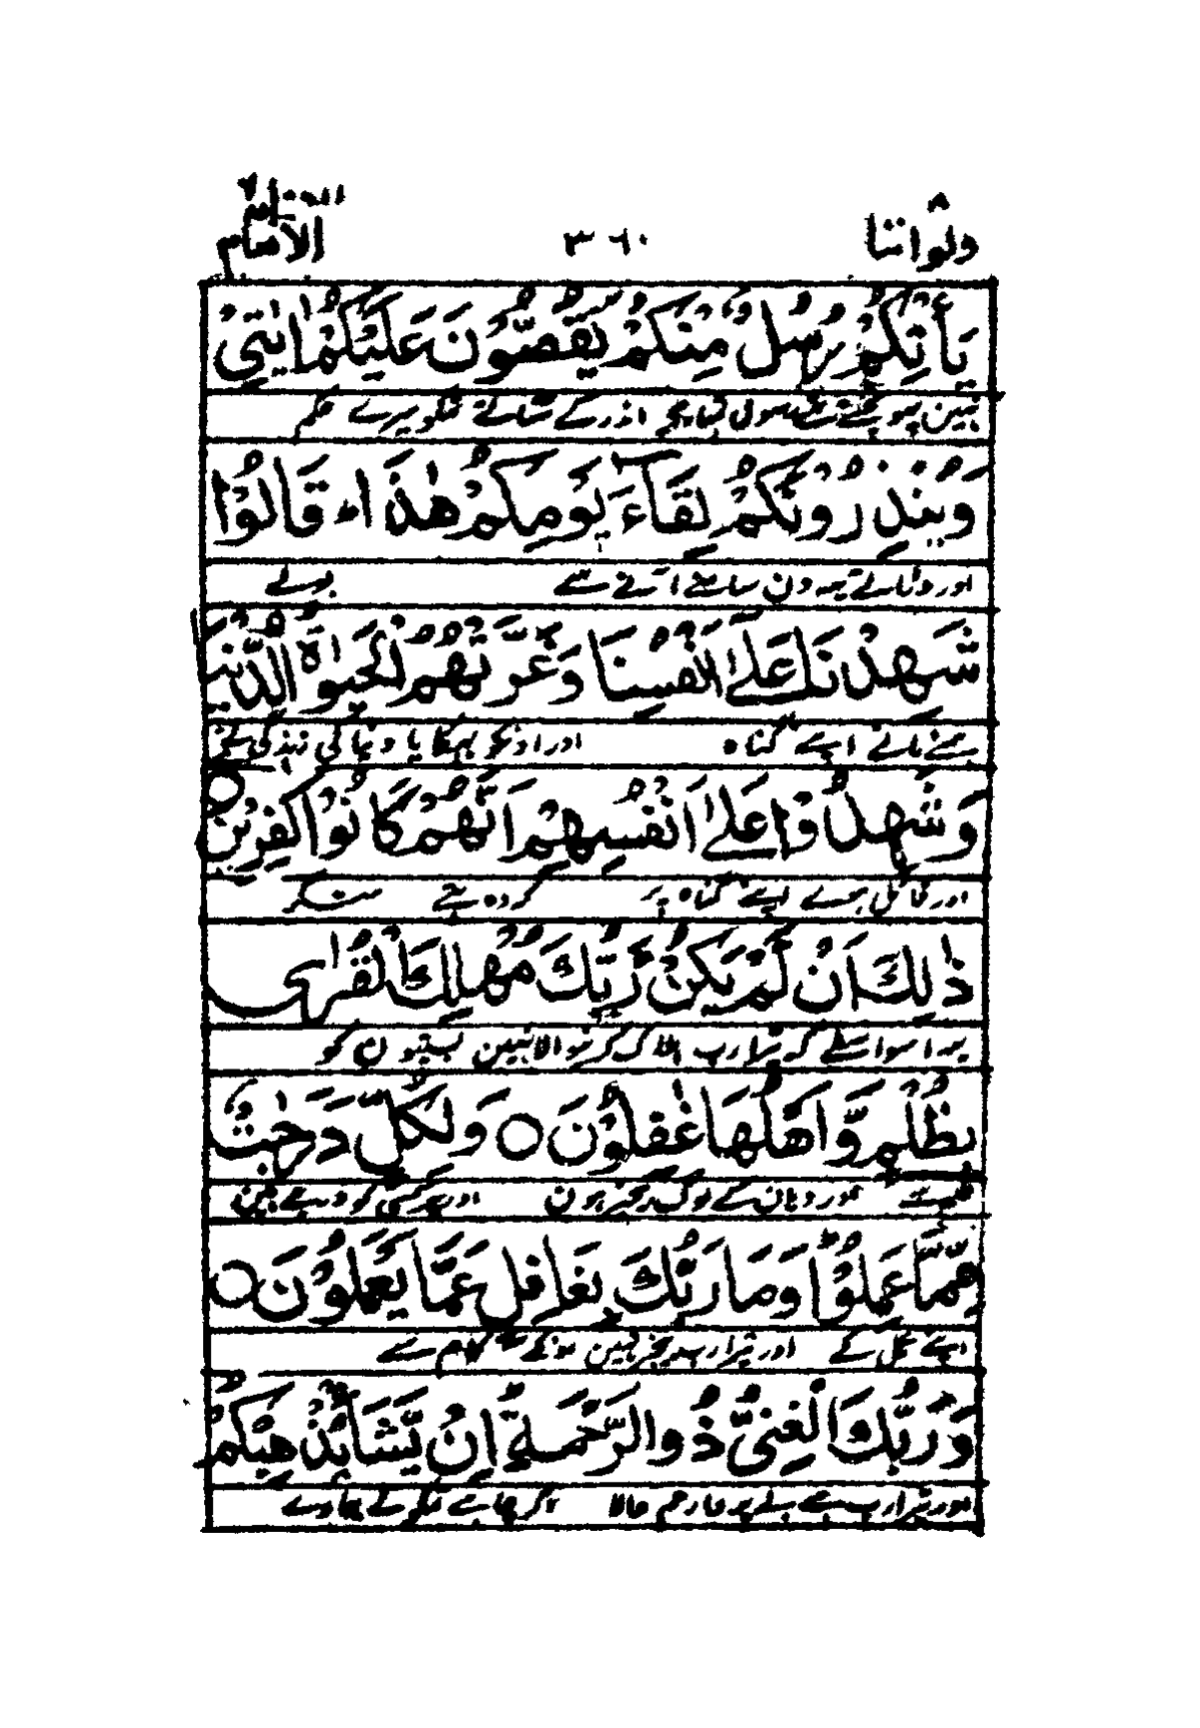 ولواننا ٨ ٣٦٠ الانعام ٦
يَأْتِكُمْ رُسُلٌ مِّنكُمْ يَقُصُّونَ عَلَيْكُمْ اٰيٰتِيْ
نہین پہونچے تھے رسول تمہارے اندر کے سناتے تمکو میرے حکم
وَيُنْذِرُوْنَكُمْ لِقَآءَ يَوْمِكُمْ هٰذَا ؕ قَالُوْا
اور ڈراتے یہہ دن سامنے آنے سے بولے
شَهِدْنَا عَلٰٓى اَنْفُسِنَا وَغَرَّتْهُمُ الْحَيٰوةُ الدُّنْيَا
ہمنے مانے اپنے گناہ اور اونکو بہکایا دنیا کی زندگی نے
وَشَهِدُوْا عَلٰٓى اَنْفُسِهِمْ اَنَّهُمْ كَانُوْا كٰفِرِيْنَ ○
اور قائل ہوے اپنے گناہ پر کہ وہ تھے منکر
ذٰلِكَ اَنْ لَّمْ يَكُنْ رَّبُّكَ مُهْلِكَ الْقُرٰى
یہہ اسواسطے کہ تیرا رب ہلاک کرنیوالا نہین بستیون کو
بِظُلْمٍ وَّاَهْلُهَا غٰفِلُوْنَ ○ وَلِكُلٍّ دَرَجٰتٌ
ظلم سے اور وہان کے لوگ بےخبر ہون اور ہر کسی کو درجے ہین
مِّمَّا عَمِلُوْا ؕ وَمَا رَبُّكَ بِغَافِلٍ عَمَّا يَعْمَلُوْنَ ○
اپنے عمل کے اور تیرا رب بےخبر نہین اونکے کام سے
وَرَبُّكَ الْغَنِىُّ ذُو الرَّحْمَةِ ؕ اِنْ يَّشَاْ يُذْهِبْكُمْ
اور تیرا رب بے پروا رحم والا اگر چاہے تمکو لے جاوے